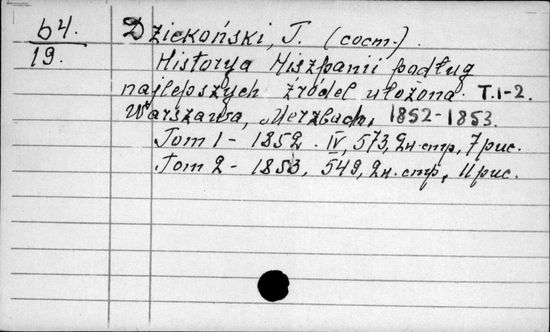 64.
19.
Dziekoński, T. (сост.)
Historya Hiszpanii podług
najlepszych źródeł ułożona. T. 1-2.
Warszawa, Merzbach, 1852-1853.
Tom 1 - 1852. IV, 573, 2 н. стр., 7 рис.
Tom 2 - 1853, 549, 2 н. стр., 11 рис.